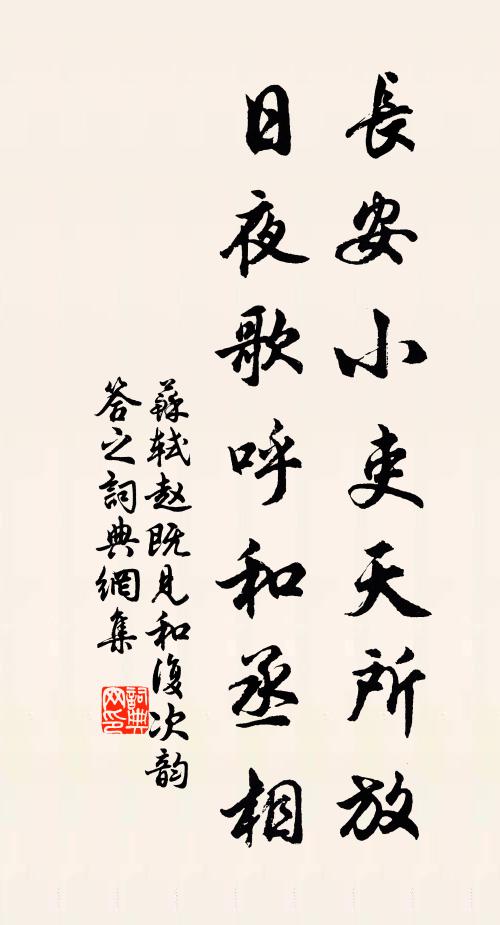 長安小吏天所放
日夜歌呼和丞相
蘇軾赵既見和復次韵
答之詞典網集
詞典网印